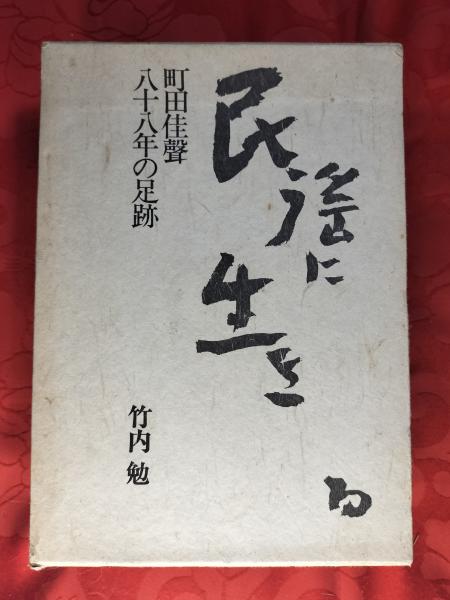 民謡に
生きる
町田佳聲
八十八年の足跡
竹内勉